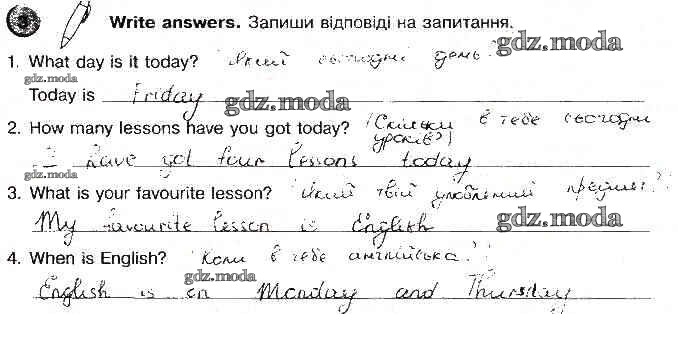 3 Write answers. Запиши відповіді на запитання.
gdz.moda
1. What day is it today? Який сьогодні день?
gdz.moda
Today is Friday
gdz.moda
2. How many lessons have you got today? (Скільки в тебе сьогодні
уроків?)
I have got four lessons today
gdz.moda
3. What is your favourite lesson? Який твій улюблений предмет?
My favourite lesson is English
gdz.moda
4. When is English? Коли в тебе англійська?
gdz.moda
English is on Monday and Thursday